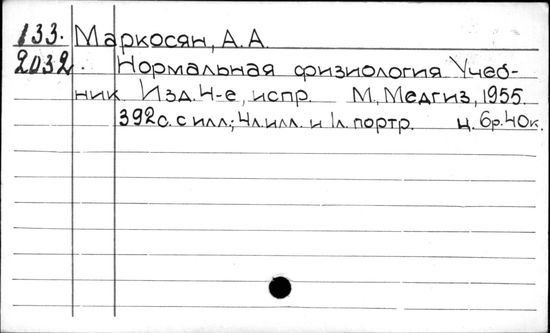 133. Маркосян, А. А.
2032. Нормальная физиология. Учеб-
ник. Изд. 4-е, испр. М., Медгиз, 1955.
392 с. с илл; 4 л. илл. и 1 л. портр. ц. 6 р. 40 к.